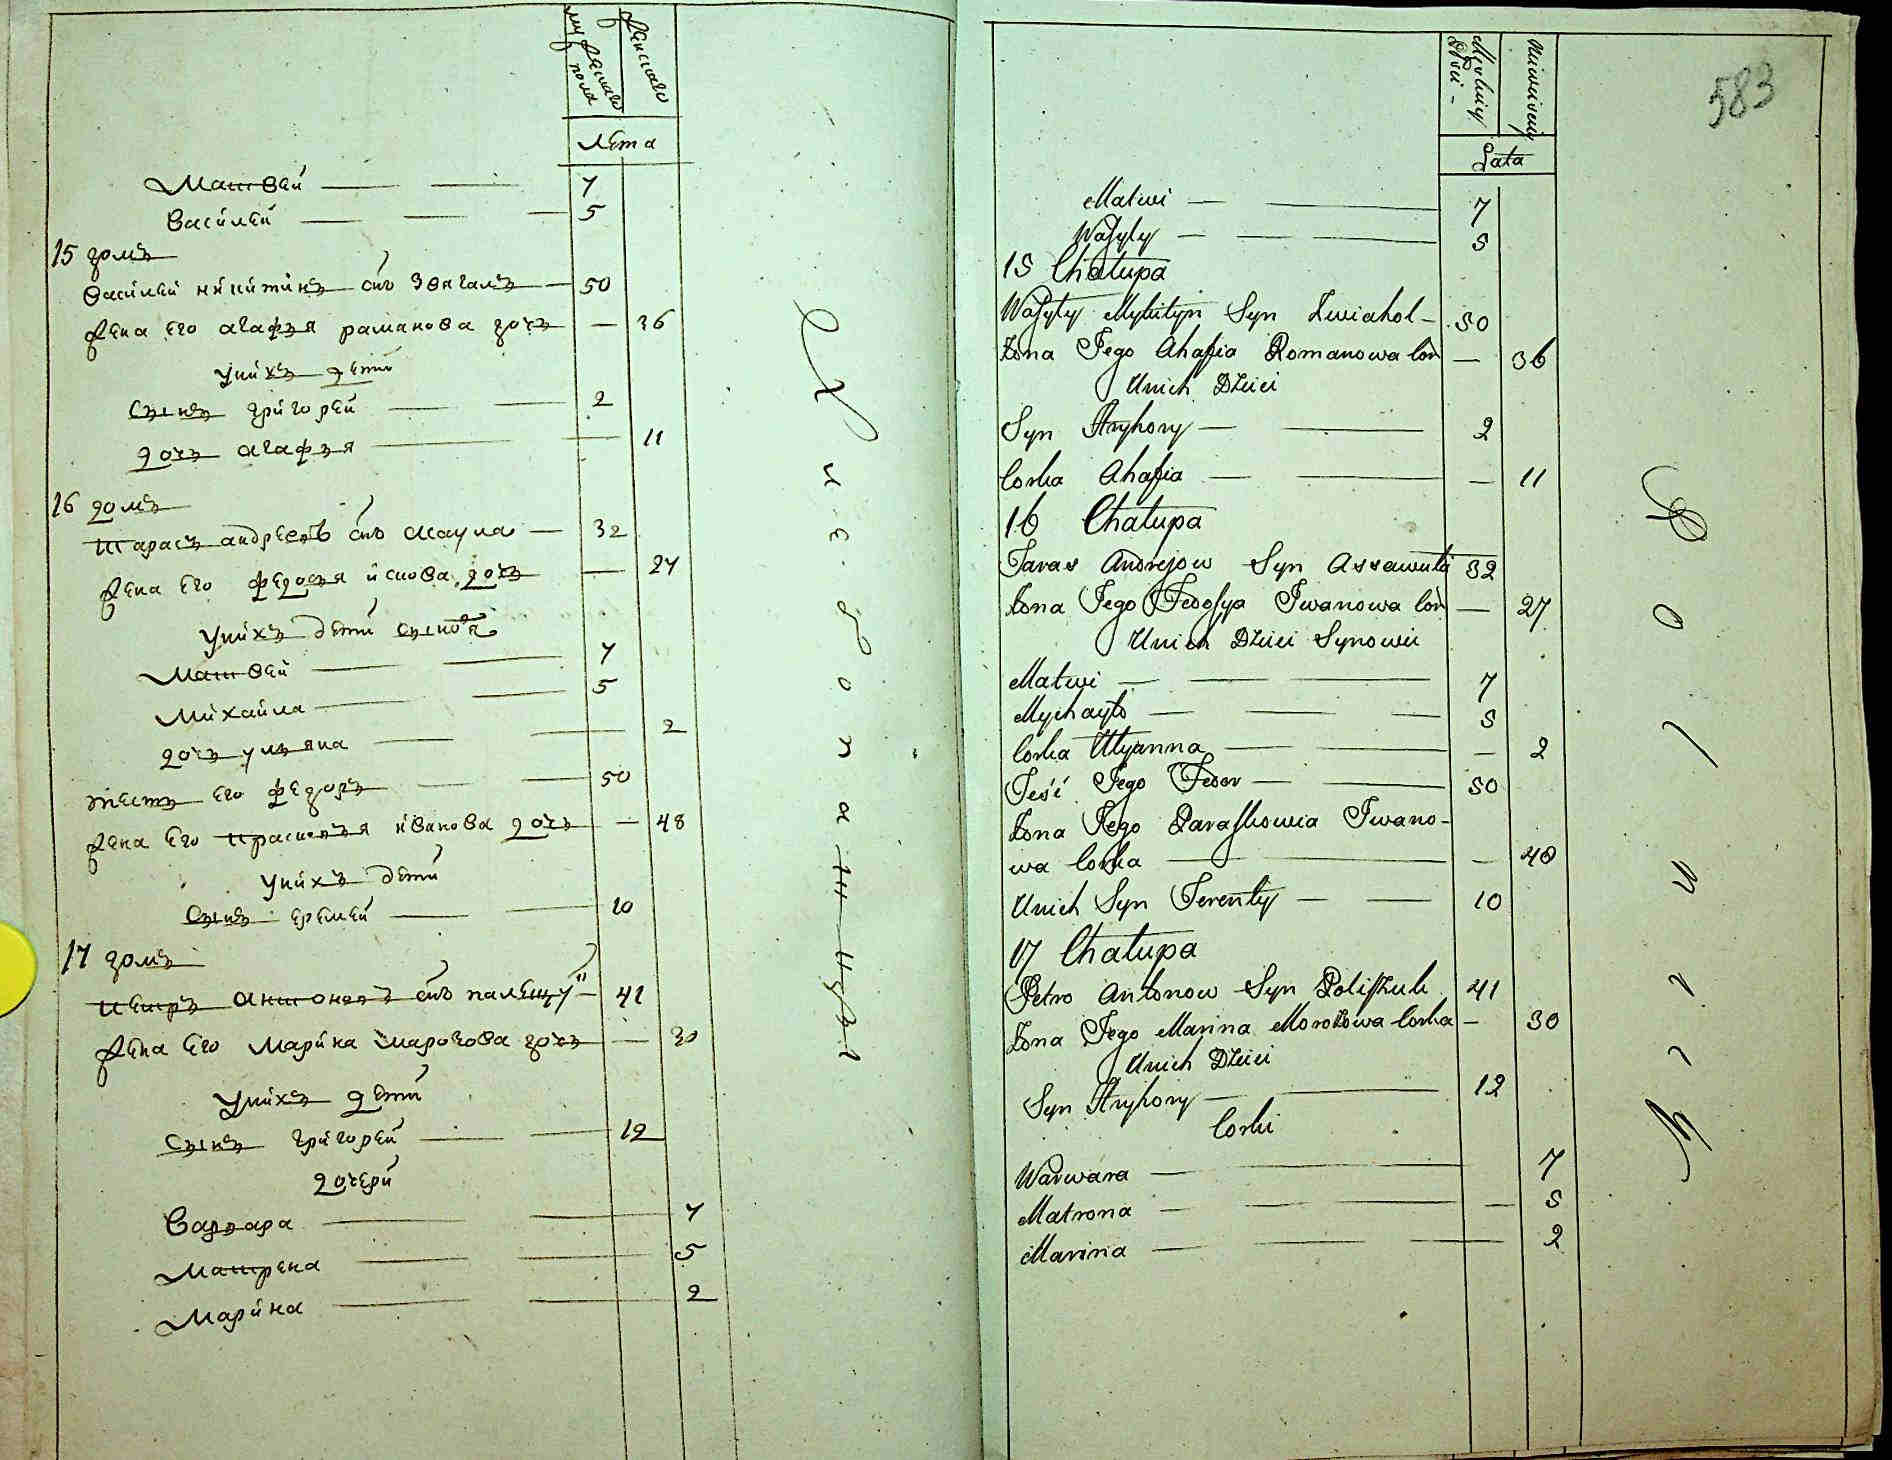 мужескаго пола
женскаго
лѣта
Матвей 7
Василей 5
15 домъ
Василей никитинъ снъ Звягалъ 50
жена его агафья раманова дочь — 36
у нихъ дети
сынъ григорей 2
дочь агафья 11
16 домъ
Тарасъ андреевъ снъ Асаула 32
жена его федосья иванова дочь — 27
у нихъ дети сыновя
Матвей 7
Михайла 5
дочь ульяна 2
тесть его федоръ 50
жена его прасковья иванова дочь — 48
у нихъ дети
сынъ еремей 10
17 домъ
Петръ Антоновъ снъ палещу 41
жена его марина марозова дочь — 30
у нихъ дети
сынъ григорей 12
дочери
Варвара 7
Матрена 5
Марина 2
583
Męskiej Płci
Niewieściej
Lata
Matwi 7
Wasyly 5
15 Chałupa
Wasyly Mykityn Syn Zwiahol 50
Żona Jego Ahafia Romanowa Cór — 36
U nich Dzieci
Syn Hryhory 2
Corka Ahafia — 11
16 Chałupa
Taras Andrejow Syn Assawuła 32
Żona Jego Fedosya Iwanowa Cór — 27
U nich Dzieci Synowie
Matwi 7
Mychayło 5
Corka Ulyanna — 2
Teść Jego Fedor 50
Żona Jego Paraskowia Iwano-
wa Corka — 48
U nich Syn Terenty 10
17 Chałupa
Petro Antonow Syn Poliszuk 41
Żona Jego Marina Morozowa Corka — 30
U nich Dzieci
Syn Hryhory 12
Corki
Warwara 7
Matrona — 5
Marina 2